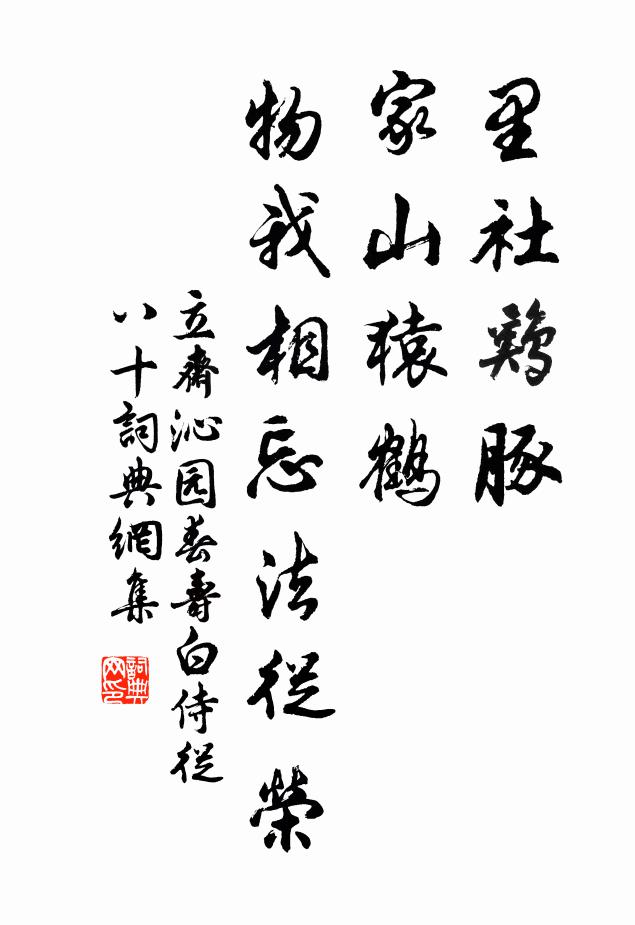 里社鷄豚
家山猿鶴
物我相忘法從榮
立齋沁园春壽白侍從
八十詞典網集
詞典网印